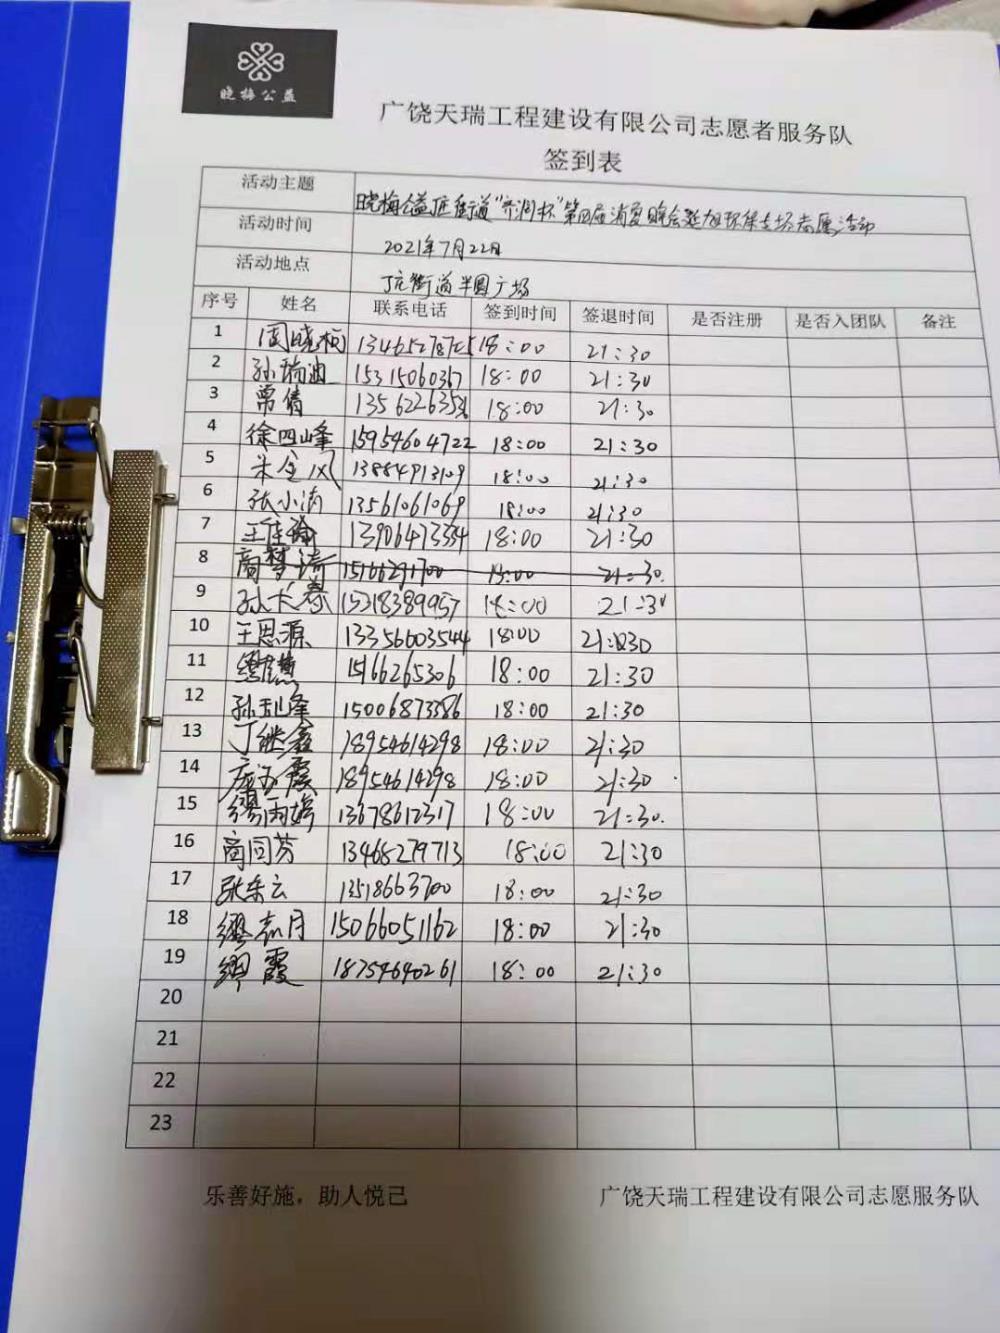 晓梅公益
广饶天瑞工程建设有限公司志愿者服务队
签到表
活动主题 晓梅公益 街道 杯"第四届消夏晚会 环保专场志愿活动
活动时间 2021年7月22日
活动地点 丁庄街道半圆广场
序号 姓名 联系电话 签到时间 签退时间 是否注册 是否入团队 备注
1 周晓梅 18:00 21:30
2 15315060367 18:00 21:30
3 常倩 18:00 21:30
4 徐四峰 15954604722 18:00 21:30
5 朱金凤 13884913109 18:00 21:30
6 张小涛 13561061069 18:00 21:30
7 王佳瑜 13906473334 18:00 21:30
8 商梦 15166291700 18:00 21:30.
9 15218389957 18:00
10 王思源 13356603544 18:00
11 15166265306 18:00 21:30
12 孙玉峰 15006873386 18:00 21:30
13 丁继鑫 18954614298 18:00 21:30
14 霞 18954614298 18:00 21:30
15 13678612317 18:00 21:30.
16 商同芬 13468279713 18:00 21:30
17 张东云 13518663700 18:00 21:30
18 15066051162 18:00 21:30
19 霞 18754640261 18:00 21:30
20
21
22
23
乐善好施，助人悦己 广饶天瑞工程建设有限公司志愿服务队